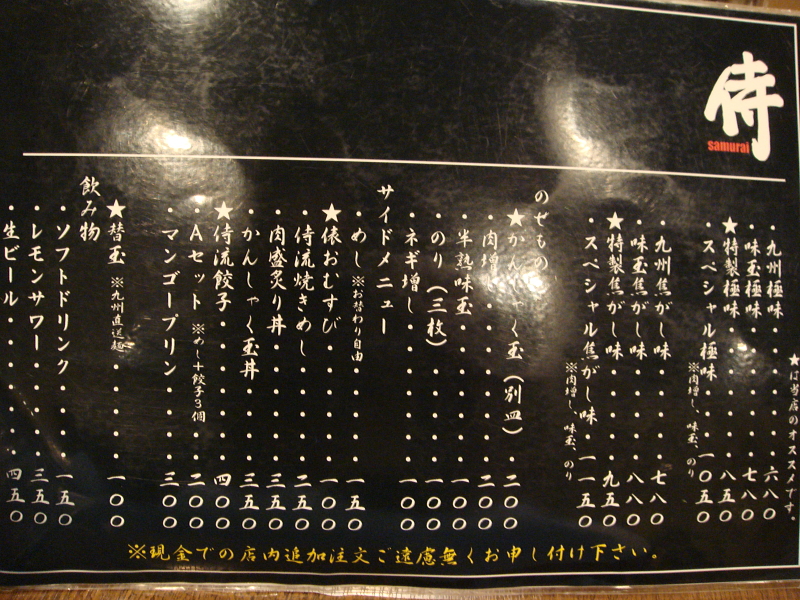 侍
samurai
★は当店のオススメです。
・九州極味・・・・六八〇
・味玉極味・・・・七八〇
★特製極味・・・・八五〇
・スペシャル極味・・一〇五〇
※肉増し、味玉、のり
・九州焦がし味・・・・七八〇
・味玉焦がし味・・・・八八〇
★特製焦がし味・・・・九五〇
・スペシャル焦がし味・・一一五〇
※肉増し、味玉、のり
のせもの
★かんしゃく玉(別皿)・二〇〇
・肉増し・・・・・・二〇〇
・半熟味玉・・・・・一〇〇
・のり(三枚)・・・・一〇〇
・ネギ増し・・・・・一〇〇
サイドメニュー
・めし ※お替わり自由・・・・一五〇
★俵おむすび・・・・一〇〇
・侍流焼きめし・・・・二五〇
・肉盛炙り丼・・・・三五〇
・かんしゃく玉丼・・・三五〇
★侍流餃子・・・・・四〇〇
・Aセット ※めし+餃子3個・二〇〇
・マンゴープリン・・・三〇〇
★替玉 ※九州直送麺・・・一〇〇
飲み物
・ソフトドリンク・・・一五〇
・レモンサワー・・・・三五〇
・生ビール・・・・・・四五〇
※現金での店内追加注文ご遠慮無くお申し付け下さい。